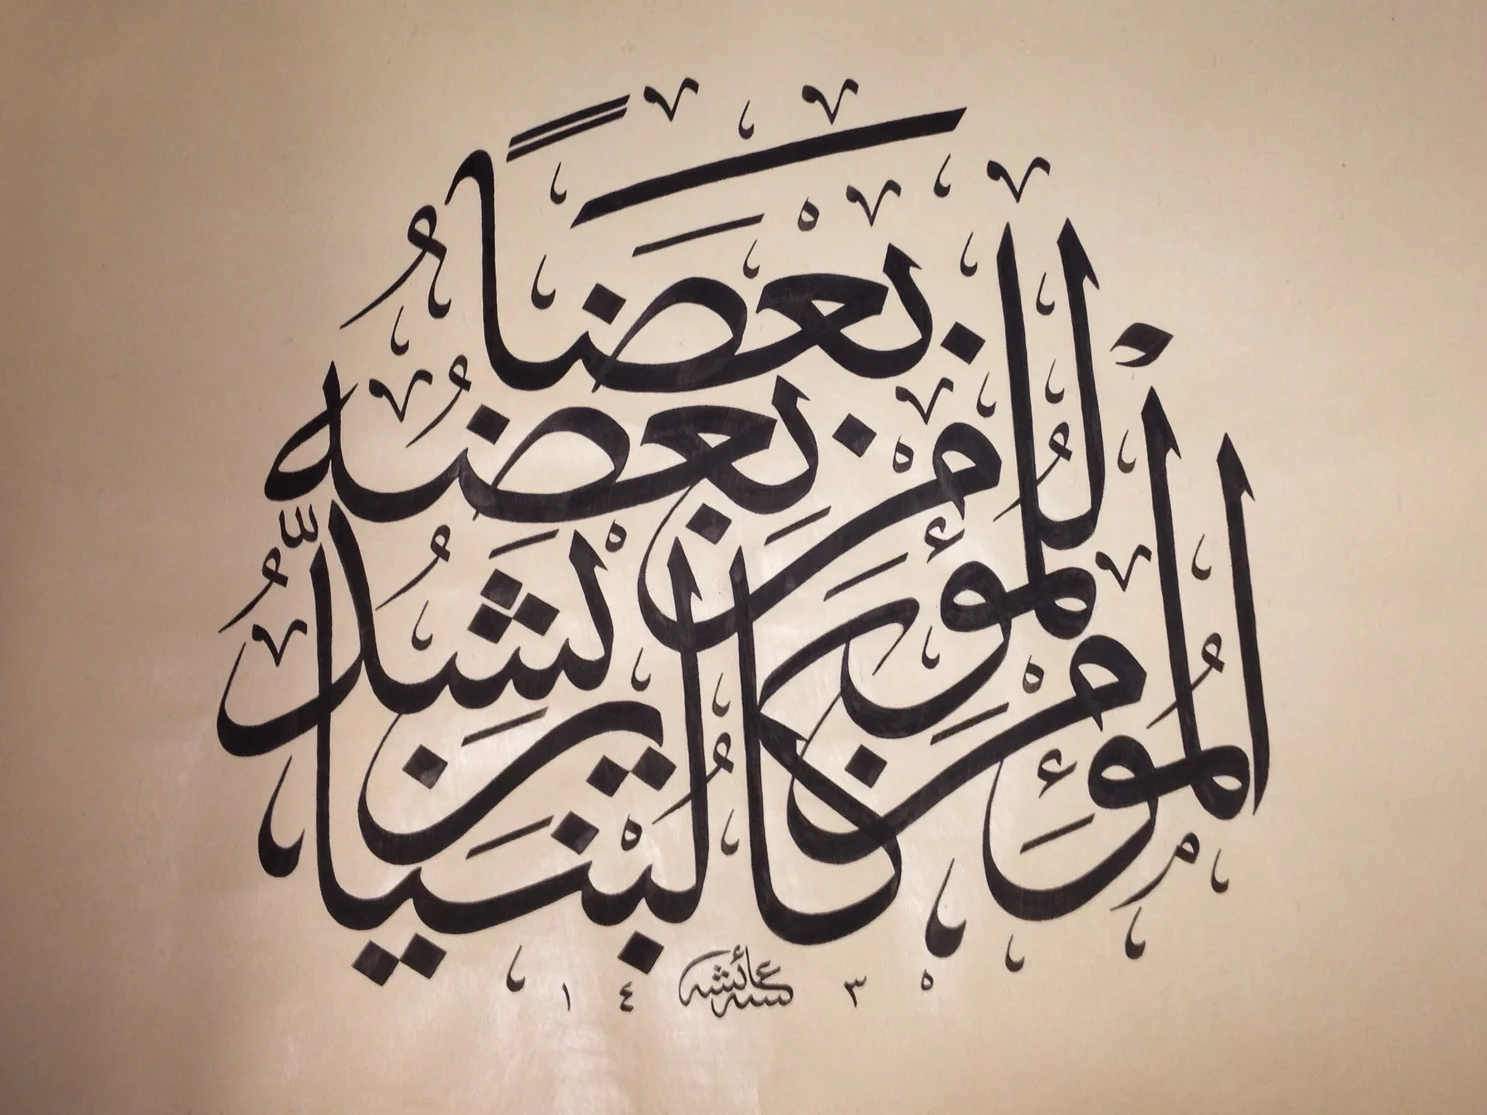 الْمُؤْمِنُ لِلْمُؤْمِنِ كَالْبُنْيَانِ يَشُدُّ بَعْضُهُ بَعْضًا
١٤ عائشة ٣٥